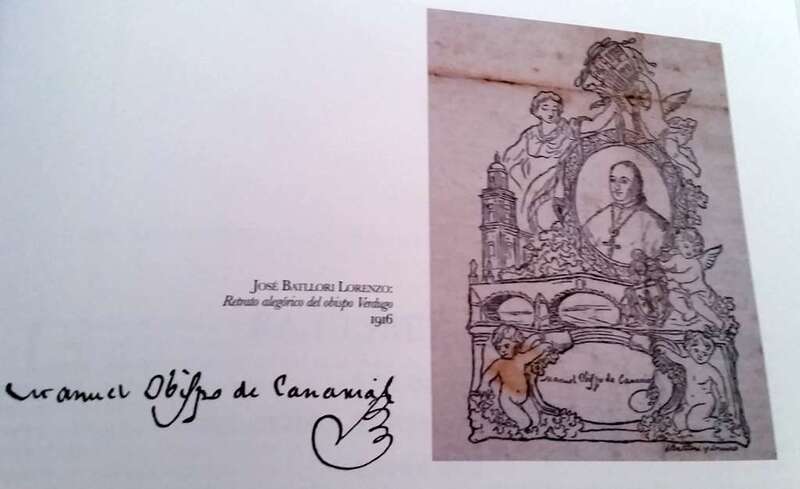 JOSÉ BATLLORI LORENZO:
Retrato alegórico del obispo Verdugo
1916
Manuel Obispo de Canarias
Manuel Obispo de Canarias
Batllori y Lorenzo